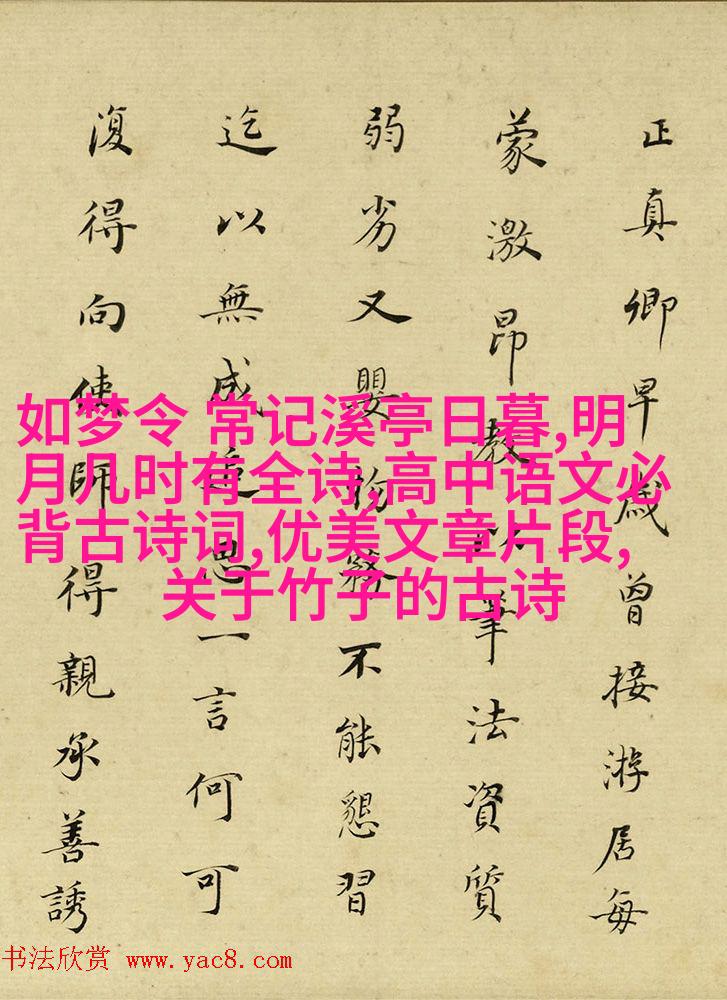 正真卿早歲曾接游居每
蒙激昂教以筆法資質
弱劣又嬰物務不能懇習
迄以無成追思一言何可
復得向使師得親承善誘
如梦令 常记溪亭日暮,明
月几时有全诗,高中语文必
背古诗词,优美文章片段,
关于竹子的古诗
书法欣赏 www.yac8.com